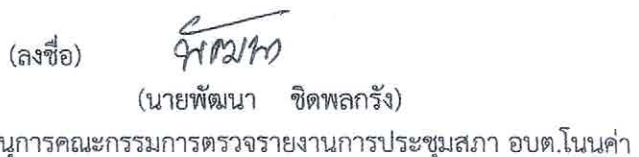 (ลงชื่อ) พัฒนา
(นายพัฒนา ชิดพลกรัง)
นุการคณะกรรมการตรวจรายงานการประชุมสภา อบต.โนนค่า